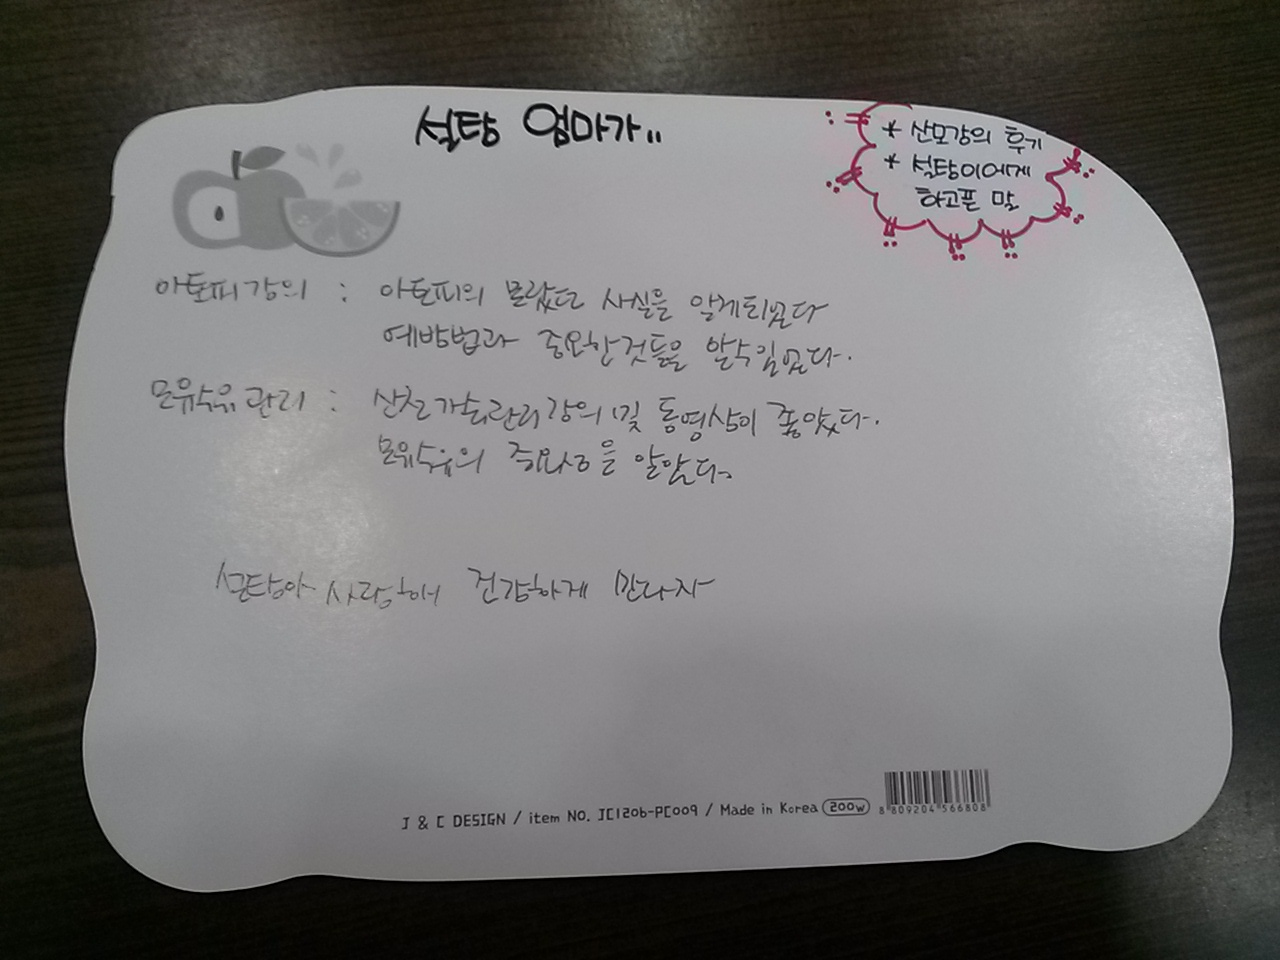 설탕 엄마가..
* 산모강의 후기
* 설탕이에게
하고픈 말
아토피강의 : 아토피의 몰랐던 사실을 알게되었다
예방법과 중요한것들을 알수있었다.
모유수유관리 : 산전가슴관리강의 및 동영상이 좋았다.
모유수유의 중요성을 알았다.
설탕아 사랑해 건강하게 만나자
J & C DESIGN / item NO. JC1206-PC009 / Made in Korea 200w
8 809204 566808